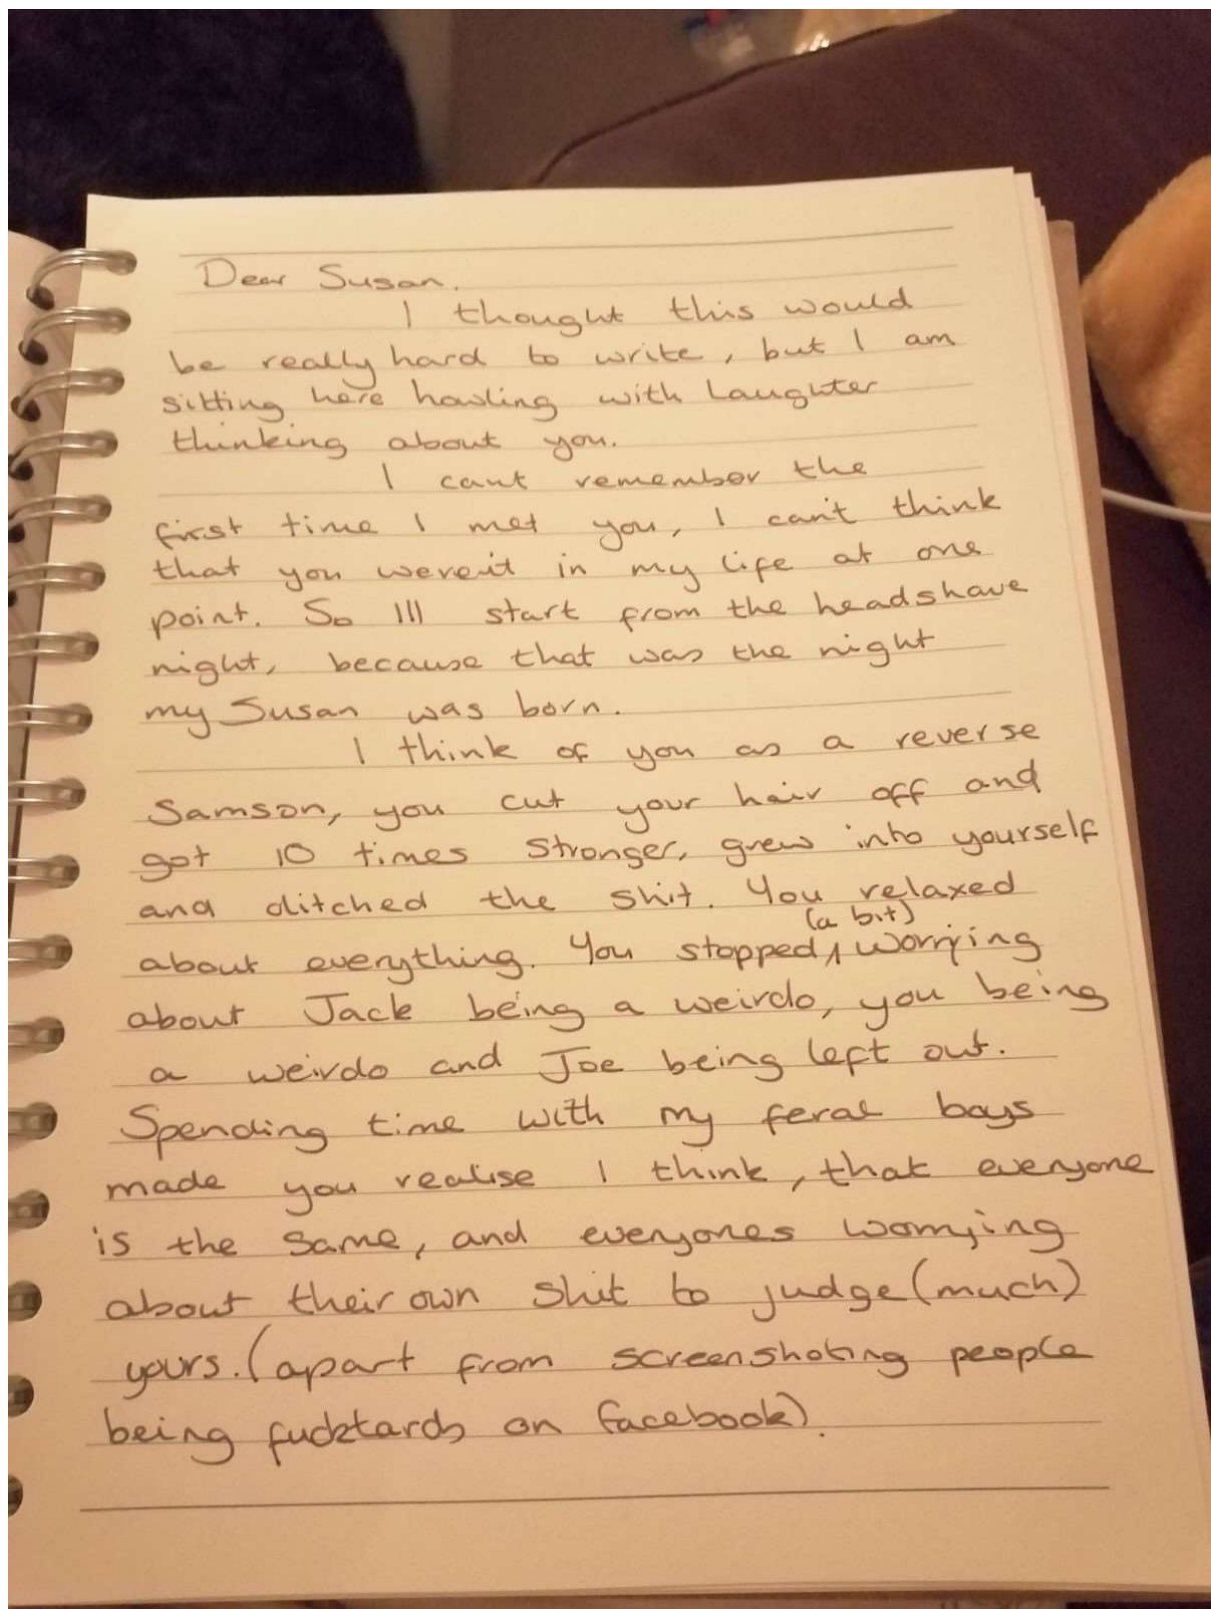 Dear Susan.
I thought this would
be really hard to write, but I am
sitting here howling with laughter
thinking about you.
I cant remember the
first time I met you, I can't think
that you weren't in my life at one
point. So I'll start from the headshave
night, because that was the night
my Susan was born.
I think of you as a reverse
Samson, you cut your hair off and
got 10 times stronger, grew into yourself
and ditched the shit. You relaxed
(a bit)
about everything. You stopped, worrying
about Jack being a weirdo, you being
a weirdo and Joe being left out.
Spending time with my feral boys
made you realise I think, that everyone
is the same, and everyones worrying
about their own shit to judge (much)
yours. (apart from screenshoting people
being fucktards on facebook).